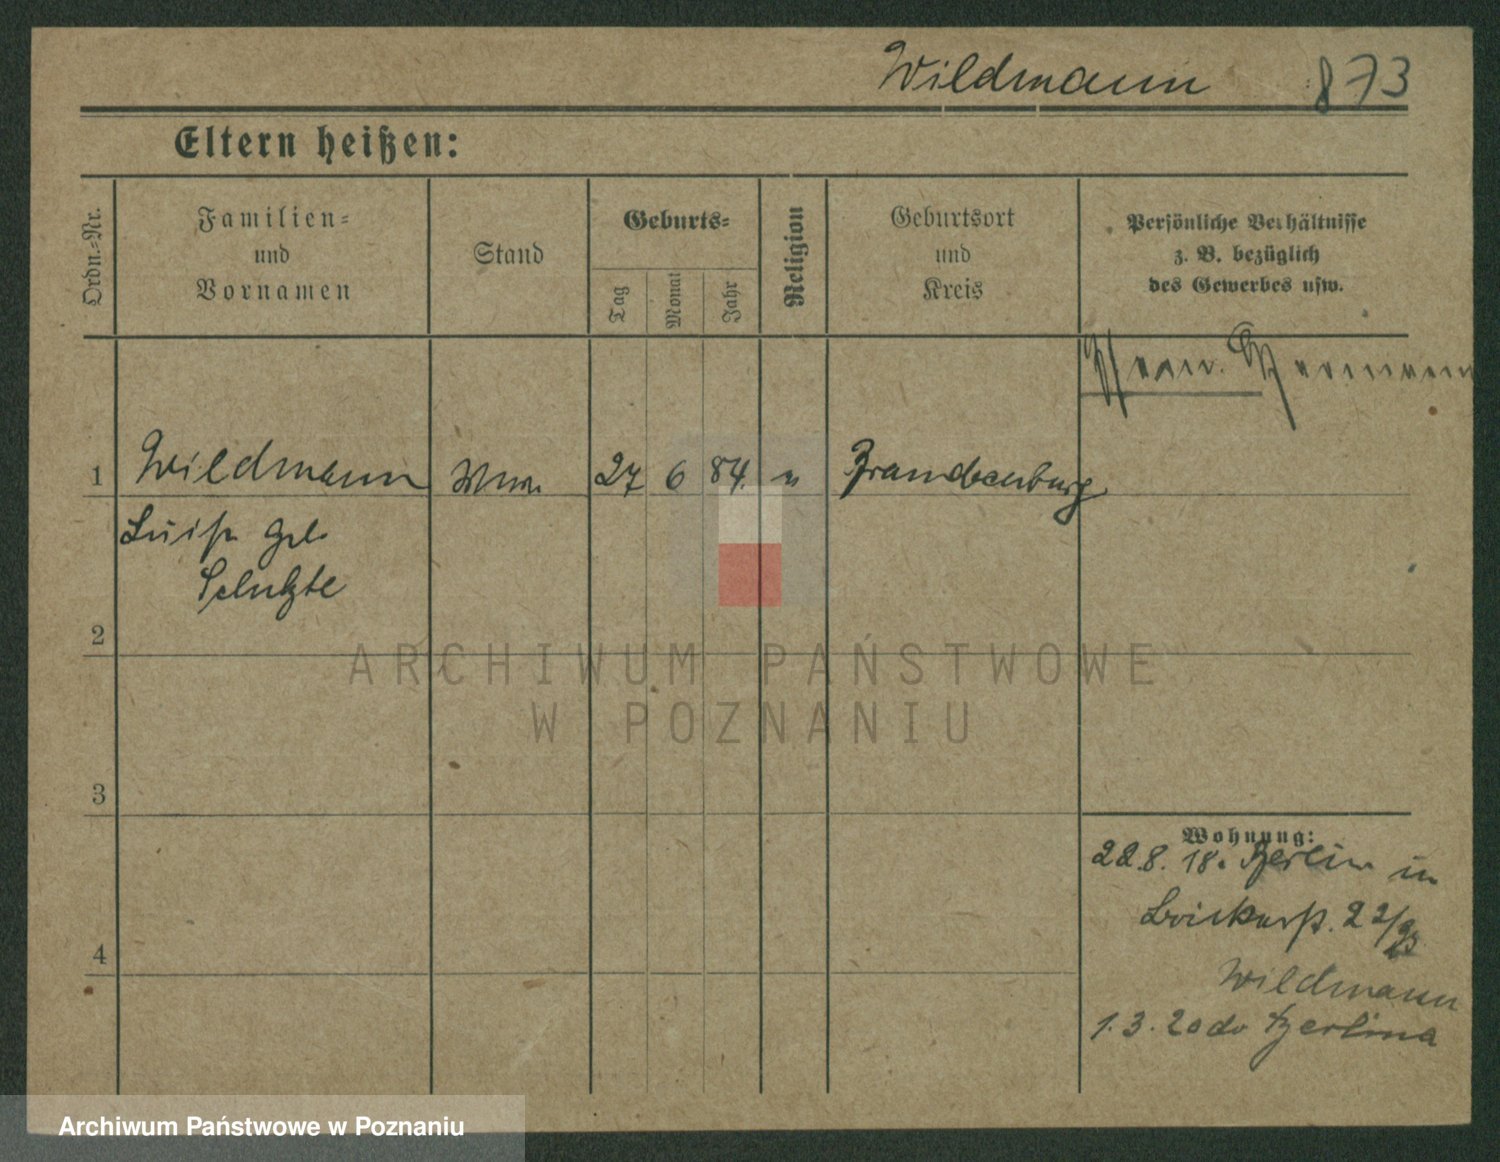 Wildmann 873
Eltern heißen:
Ordn.-Nr.
Familien-
und
Vornamen
Stand
Geburts-
Tag
Monat
Jahr
Religion
Geburtsort
und
Kreis
Persönliche Verhältnisse
z. B. bezüglich
des Gewerbes usw.
1 Wildmann 27 6 84. Brandenburg
Luise geb.
Schultze
2
3
4
Wohnung:
22.8.18. Berlin in
22/23
Wildmann
1.3.20
ARCHIWUM PAŃSTWOWE
W POZNANIU
Archiwum Państwowe w Poznaniu